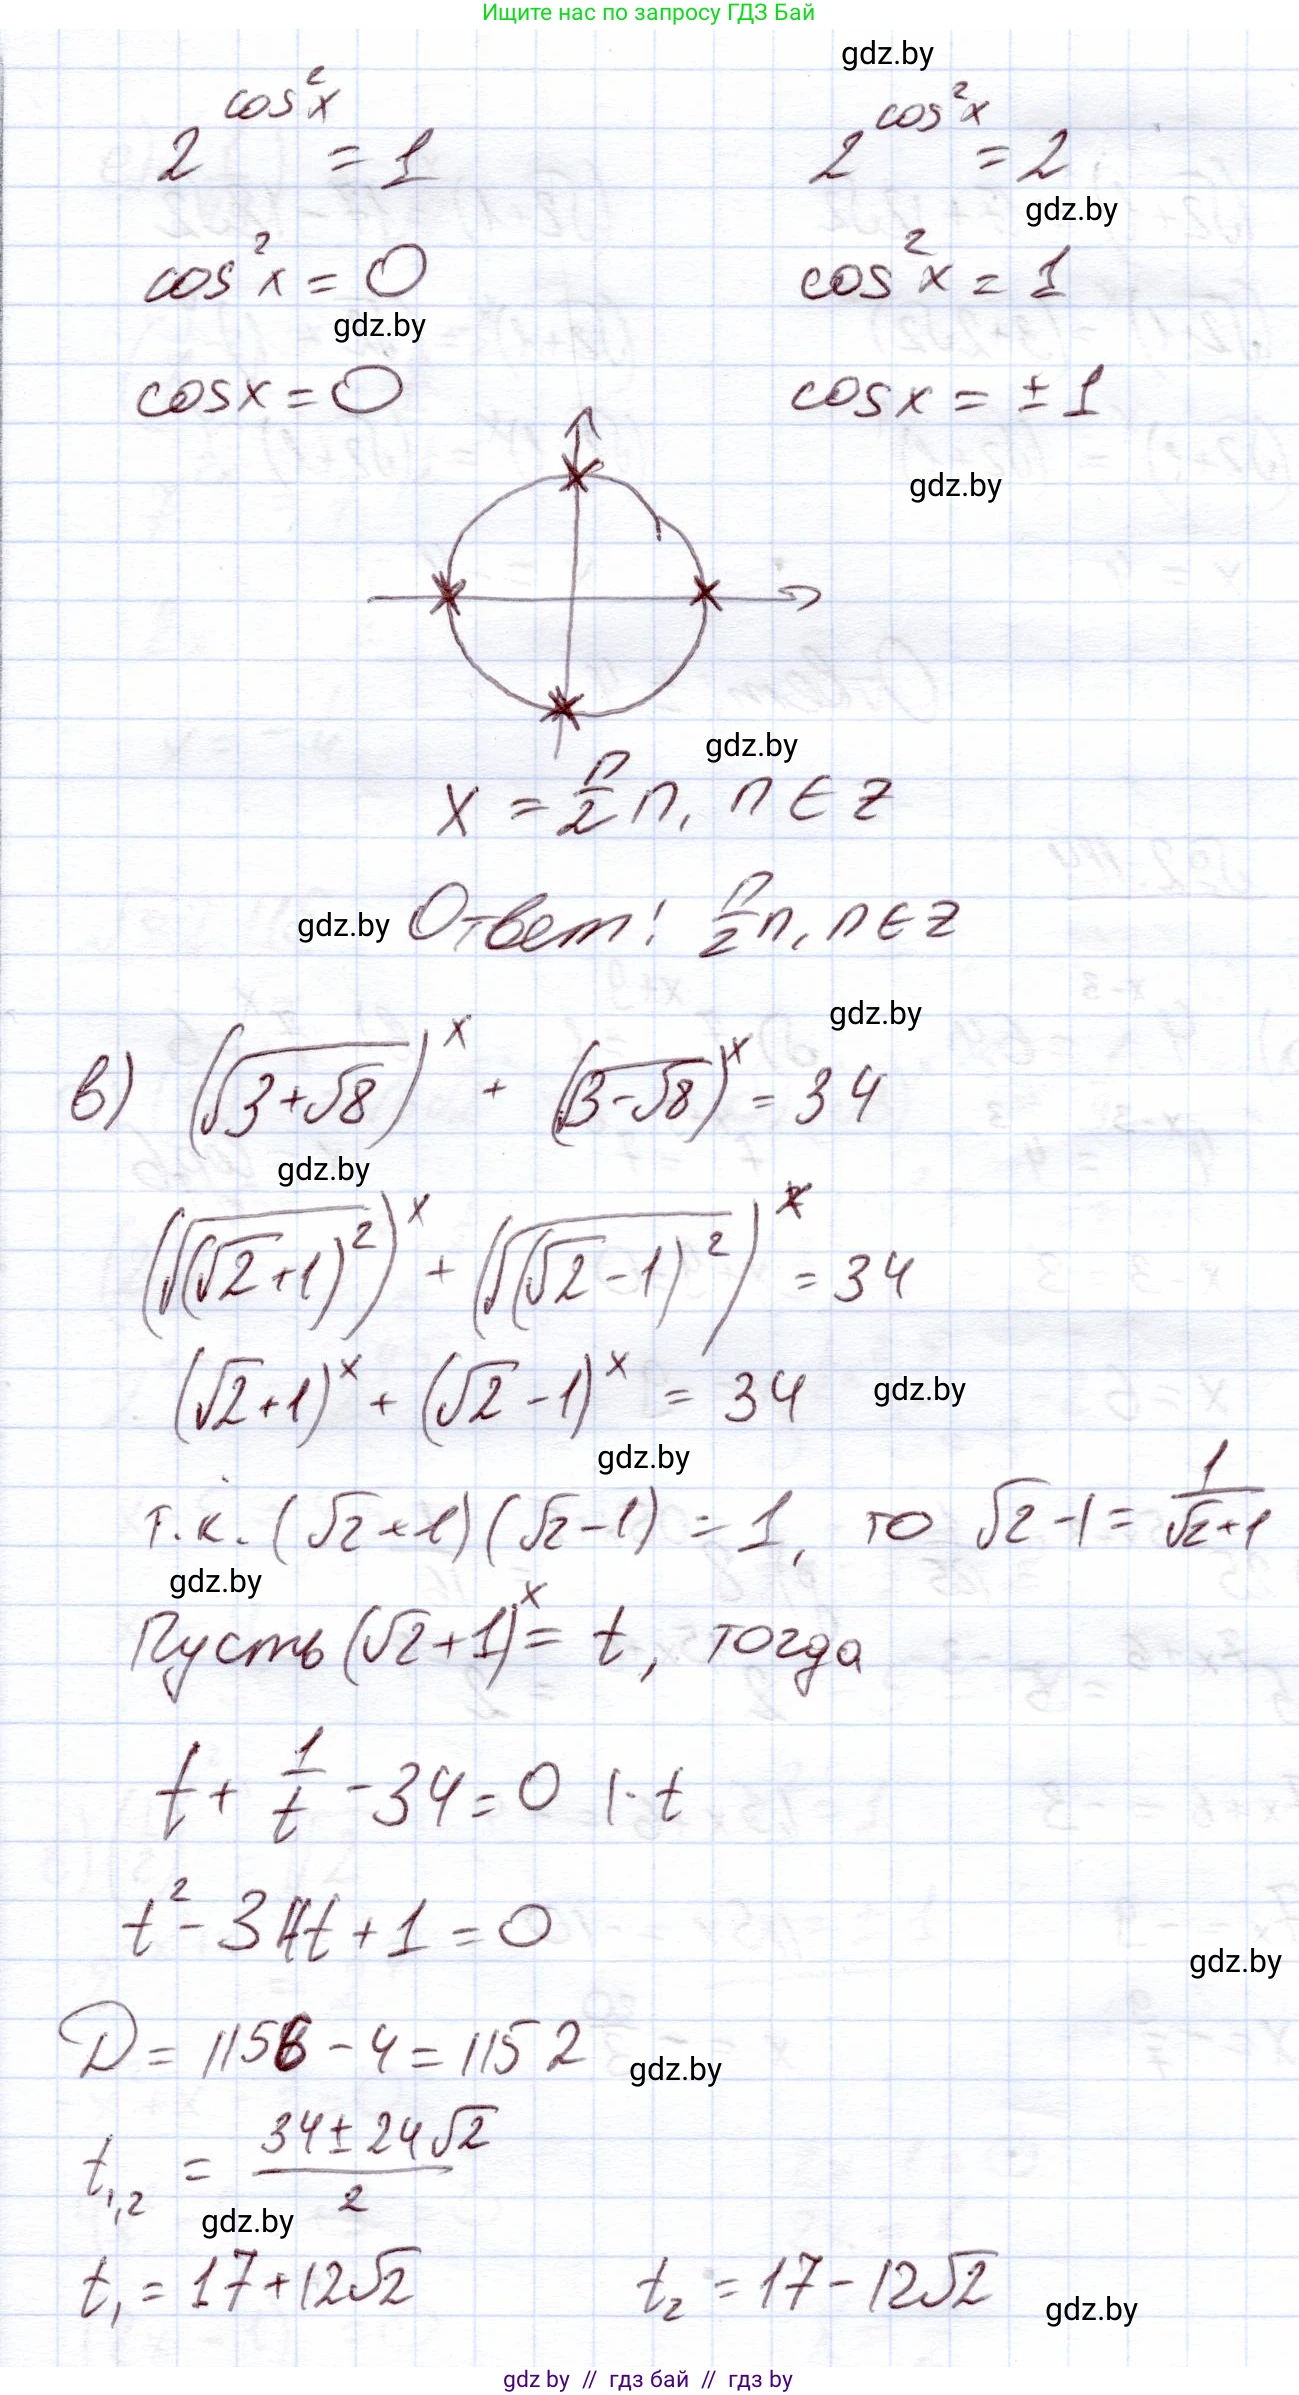 Ищите нас по запросу ГДЗ Бай
gdz.by
2^(cos²x) = 1
2^(cos²x) = 2
gdz.by
cos²x = 0
cos²x = 1
gdz.by
cosx = 0
cosx = ±1
gdz.by
gdz.by
x = π/2 n, n ∈ Z
gdz.by
Ответ: π/2 n, n ∈ Z
gdz.by
в) (√(3+√8))^x + (√(3-√8))^x = 34
gdz.by
(√((√2+1)²))^x + (√((√2-1)²))^x = 34
(√2+1)^x + (√2-1)^x = 34
gdz.by
gdz.by
т.к. (√2+1)(√2-1) = 1, то √2-1 = 1/(√2+1)
gdz.by
Пусть (√2+1)^x = t, тогда
t + 1/t - 34 = 0 |·t
t² - 34t + 1 = 0
gdz.by
D = 1156 - 4 = 1152
gdz.by
t₁,₂ = (34 ± 24√2)/2
gdz.by
t₁ = 17 + 12√2
t₂ = 17 - 12√2
gdz.by
gdz by // гдз бай // гдз by